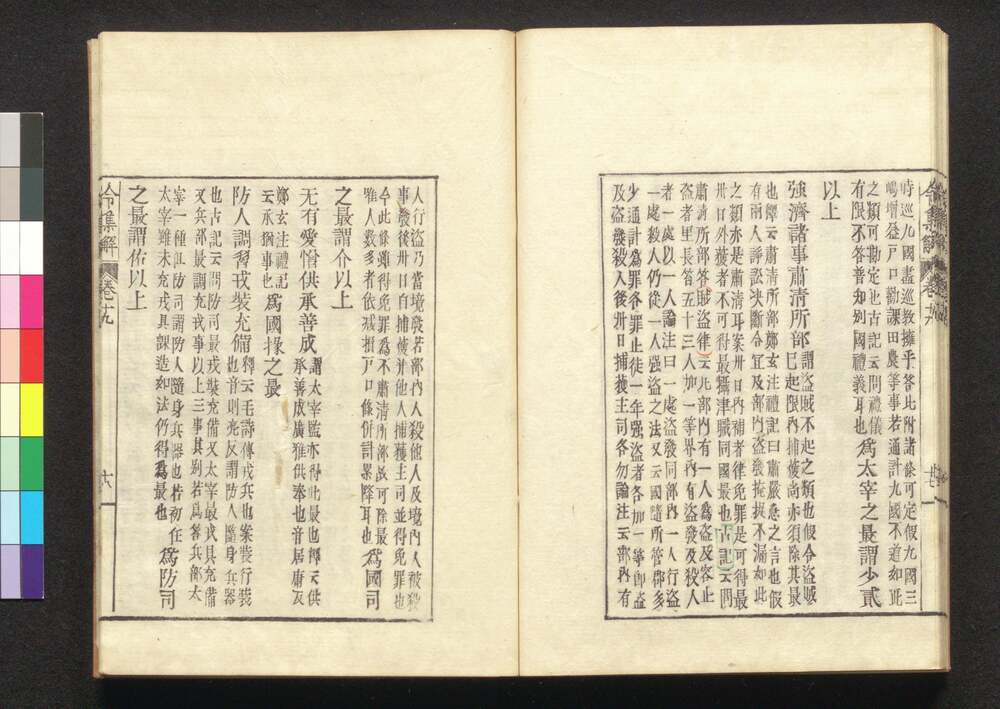 時巡九國盡巡教擁乎答比附諸條可定假九國三
嶋增益戸口勸課田農等事若通計九國不適如此
之類可勘定也古記云問禮儀
有限不答普知別國禮義耳也
為太宰之最謂少貳
以上
強濟諸事肅清所部
謂盜賊不起之類也假令盜賊
已起限內捕獲尚亦須除其最
也釋云肅清所部鄭玄注禮記曰肅嚴急之言也假
有兩人諍訟決斷合宜及部內盜發掩捉不漏如此
之類亦是肅清耳案卅日內捕者律免罪是可得最
卅日外獲者不可得最攝津職同國最也古記云問
肅清所部答賊盜律云凡部內有一人為盜及容止
盜者里長笞五十三人加一等界內有盜發及殺人
者一處以一人論注曰一處盜發同部內一人行盜
一處殺人仍從一人強盜之法又云國隨所管郡多
少通計為罪各罪止徒一年強盜者各加一等即盜
及盜發殺人後卅日捕獲主司各勿論注云部內有
人行盜乃當境發若部內人殺他人及境內人被殺
事發後卅日自捕獲并他人捕獲主司並得免罪也
今此條雖得免罪為不肅清所部故可除最
唯人數多者依減損戸口條併計累降耳也
為國司
之最謂介以上
无有愛憎供承善成
謂太宰監亦得此最也釋云供
承善成廣雅供奉也音居庸反
鄭玄注禮記
云承猶事也
為國掾之最
防人調習戎裝充備
釋云毛詩傳戎兵也案裝行裝
也音則亮反謂防人隨身兵器
也古記云問防司最戎裝充備又太宰最戎具充備
又兵部最調充戎事以上三事其別若為答兵部太
宰一種但防司謂防人隨身兵器也若初在
太宰雖未充戎具課造如法仍得為最也
為防司
之最謂佑以上
令集解
卷十九